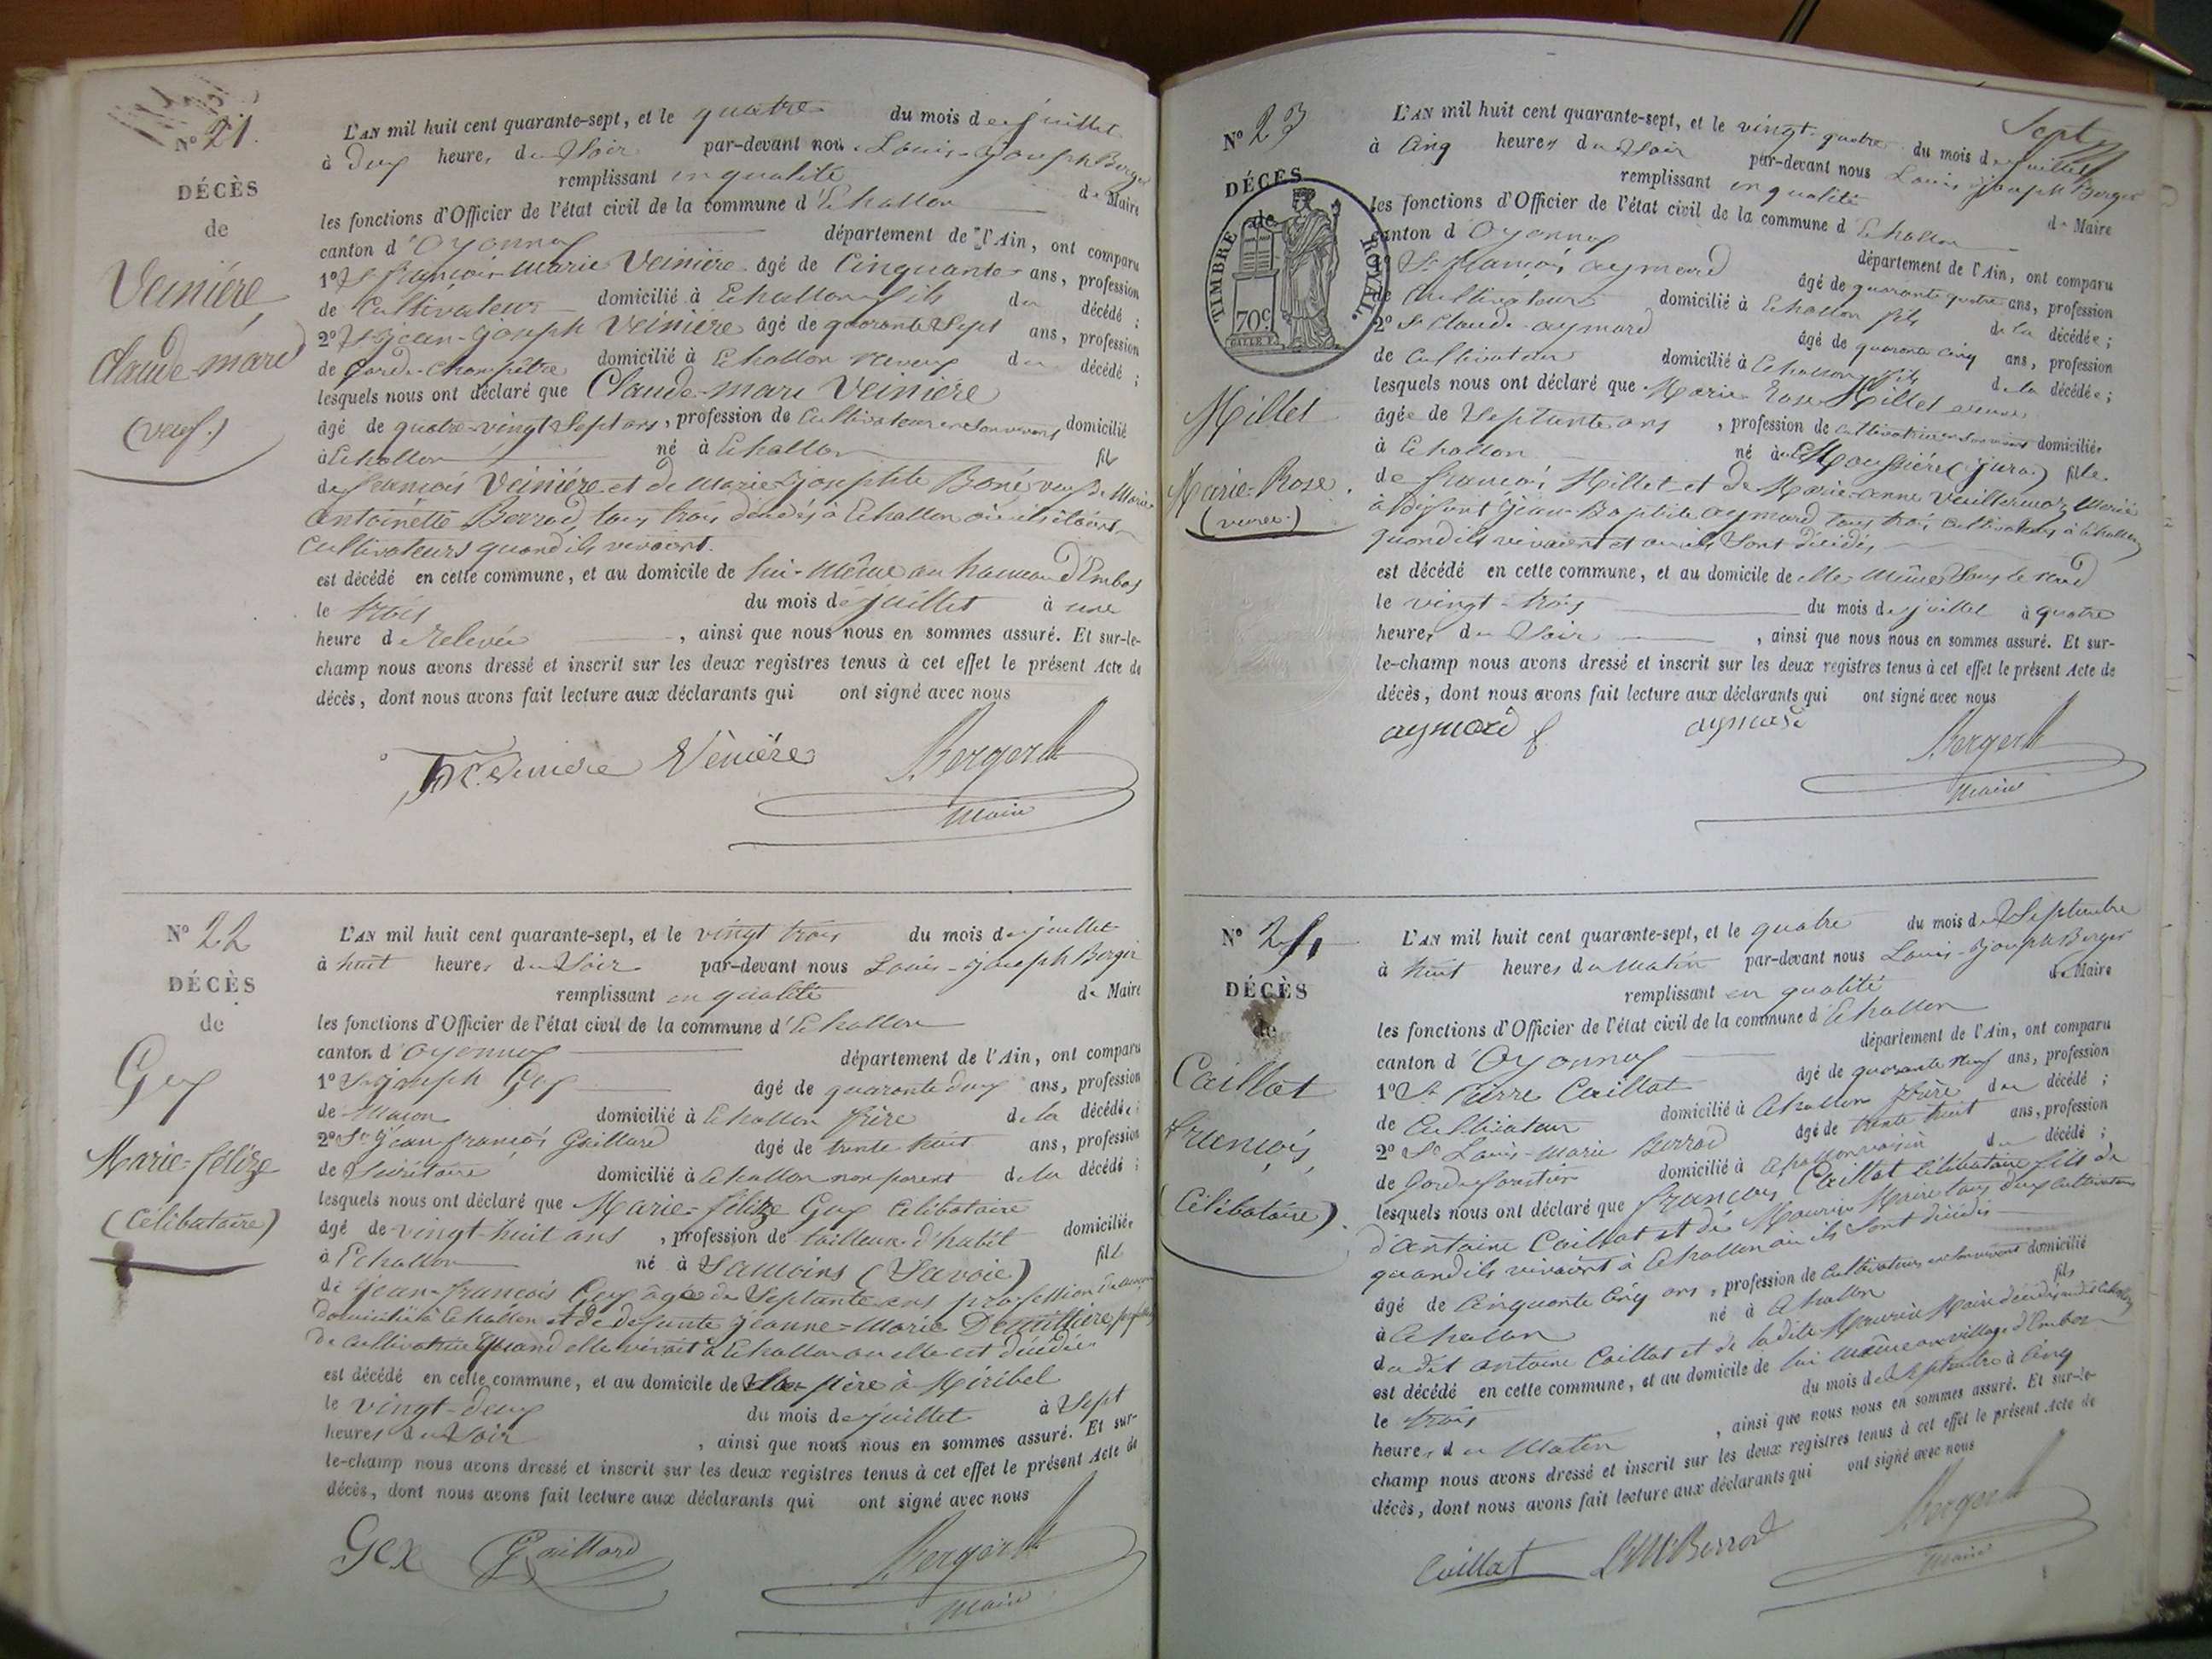 N° 21.
DÉCÈS
de
Veiniére
Claude-marie
(veuf.)
L'AN mil huit cent quarante-sept, et le quatre du mois de juillet
à deux heures du Soir par-devant nous Louis-Joseph Berger
remplissant en qualité de Maire
les fonctions d'Officier de l'état civil de la commune d'Echallon
canton d'Oyonnax département de l'Ain, ont comparu
1° Sr François-Marie Veinière âgé de Cinquante ans, profession
de Cultivateur domicilié à Echallon fils du décédé ;
2° Sr jean-joseph Veinière âgé de quarante Sept ans, profession
de garde-champêtre domicilié à Echallon neveu du décédé ;
lesquels nous ont déclaré que Claude-marie Veinière
âgé de quatre-vingt Sept ans, profession de Cultivateur en Son vivant domicilié
à Echallon né à Echallon fils
de françois Veinière et de Marie-josephte Boné veuf de Marie
antoinette Berrod, tous trois décédés à Echallon où ils étaient
Cultivateurs quand ils vivaient.
est décédé en cette commune, et au domicile de lui-même au hameau d'Embos
le trois du mois de juillet à une
heure de relevée , ainsi que nous nous en sommes assuré. Et sur-le-
champ nous avons dressé et inscrit sur les deux registres tenus à cet effet le présent Acte de
décès, dont nous avons fait lecture aux déclarants qui ont signé avec nous
Vèniére Berger
Maire
N° 22
DÉCÈS
de
Gex
Marie-félize
(Célibataire)
L'AN mil huit cent quarante-sept, et le vingt trois du mois de juillet
à huit heures du Soir par-devant nous Louis-joseph Berger
remplissant en qualité de Maire
les fonctions d'Officier de l'état civil de la commune d'Echallon
canton d'Oyonnax département de l'Ain, ont comparu
1° Sr joseph Gex âgé de quarante deux ans, profession
de Maçon domicilié à Echallon frère de la décédée ;
2° Sr jean françois Gaillard âgé de trente huit ans, profession
de Secrétaire domicilié à Echallon non parent de la décédé ;
lesquels nous ont déclaré que Marie-félize Gex Célibataire
âgé de vingt-huit ans , profession de tailleur d'habit domiciliée
à Echallon né à Samoins (Savoie) fille
de jean-françois Gex âgé de Septante ans profession de
domicilié à Echallon et de défunte jeanne-Marie
de Cultivatrice quand elle vivait à Echallon où elle est décédée
est décédé en cette commune, et au domicile de Son père à Miribel
le vingt-deux du mois de juillet à Sept
heures du Soir , ainsi que nous nous en sommes assuré. Et sur-
le-champ nous avons dressé et inscrit sur les deux registres tenus à cet effet le présent Acte de
décès, dont nous avons fait lecture aux déclarants qui ont signé avec nous
Gex Gaillard Berger
Maire
Sept
N° 23
DÉCES
de
TIMBRE ROYAL.
70c
Millet
Marie-Rose.
(veuve.)
L'AN mil huit cent quarante-sept, et le vingt-quatre du mois de juillet
à Cinq heures du Soir par-devant nous Louis joseph Berger
remplissant en qualité de Maire
les fonctions d'Officier de l'état civil de la commune d'Echallon
canton d'Oyonnax département de l'Ain, ont comparu
1° Sr françois aymard âgé de quarante quatre ans, profession
de Cultivateur domicilié à Echallon fils de la décédée ;
2° Sr Claude aymard âgé de quarante cinq ans, profession
de Cultivateur domicilié à Echallon fils de la décédée ;
lesquels nous ont déclaré que Marie Rose Millet veuve
âgée de Septante ans , profession de Cultivatrice en Son vivant domiciliée
à Echallon né à (jura) fille
de françois Millet et de Marie-anne Vuillermoz Mariée
à défunt jean-Baptiste aymard tous trois Cultivateurs à Echallon
quand ils vivaient et où ils Sont décédés
est décédé en cette commune, et au domicile de elle-Même
le vingt-trois du mois de juillet à quatre
heures du Soir , ainsi que nous nous en sommes assuré. Et sur-
le-champ nous avons dressé et inscrit sur les deux registres tenus à cet effet le présent Acte de
décès, dont nous avons fait lecture aux déclarants qui ont signé avec nous
aymard f aymard Berger
Maire
N° 24
DÉCÈS
de
Caillat
François,
(Célibataire)
L'AN mil huit cent quarante-sept, et le quatre du mois de Septembre
à huit heures du Matin par-devant nous Louis-joseph Berger
remplissant en qualité de Maire
les fonctions d'Officier de l'état civil de la commune d'Echallon
canton d'Oyonnax département de l'Ain, ont comparu
1° Sr Pierre Caillat âgé de quarante neuf ans, profession
de Cultivateur domicilié à Echallon frère du décédé ;
2° Sr Louis-Marie Berrod âgé de trente huit ans, profession
de Garde forestier domicilié à Echallon voisin du décédé ;
lesquels nous ont déclaré que françois Caillat Célibataire fils de
d'antoine Caillat et de Maurin Marie tous deux Cultivateurs
quand ils vivaient à Echallon où ils Sont décédés
âgé de Cinquante Cinq ans , profession de Cultivateur en Son vivant domicilié
à Echallon né à Echallon fils
du dit antoine Caillat et de ladite Maurin Marie décédés audit Echallon
est décédé en cette commune, et au domicile de lui Même au village d'Embos
le trois du mois de Septembre à Cinq
heures du Matin , ainsi que nous nous en sommes assuré. Et sur-le-
champ nous avons dressé et inscrit sur les deux registres tenus à cet effet le présent Acte de
décès, dont nous avons fait lecture aux déclarants qui ont signé avec nous
Caillat LM Berrod Berger
Maire